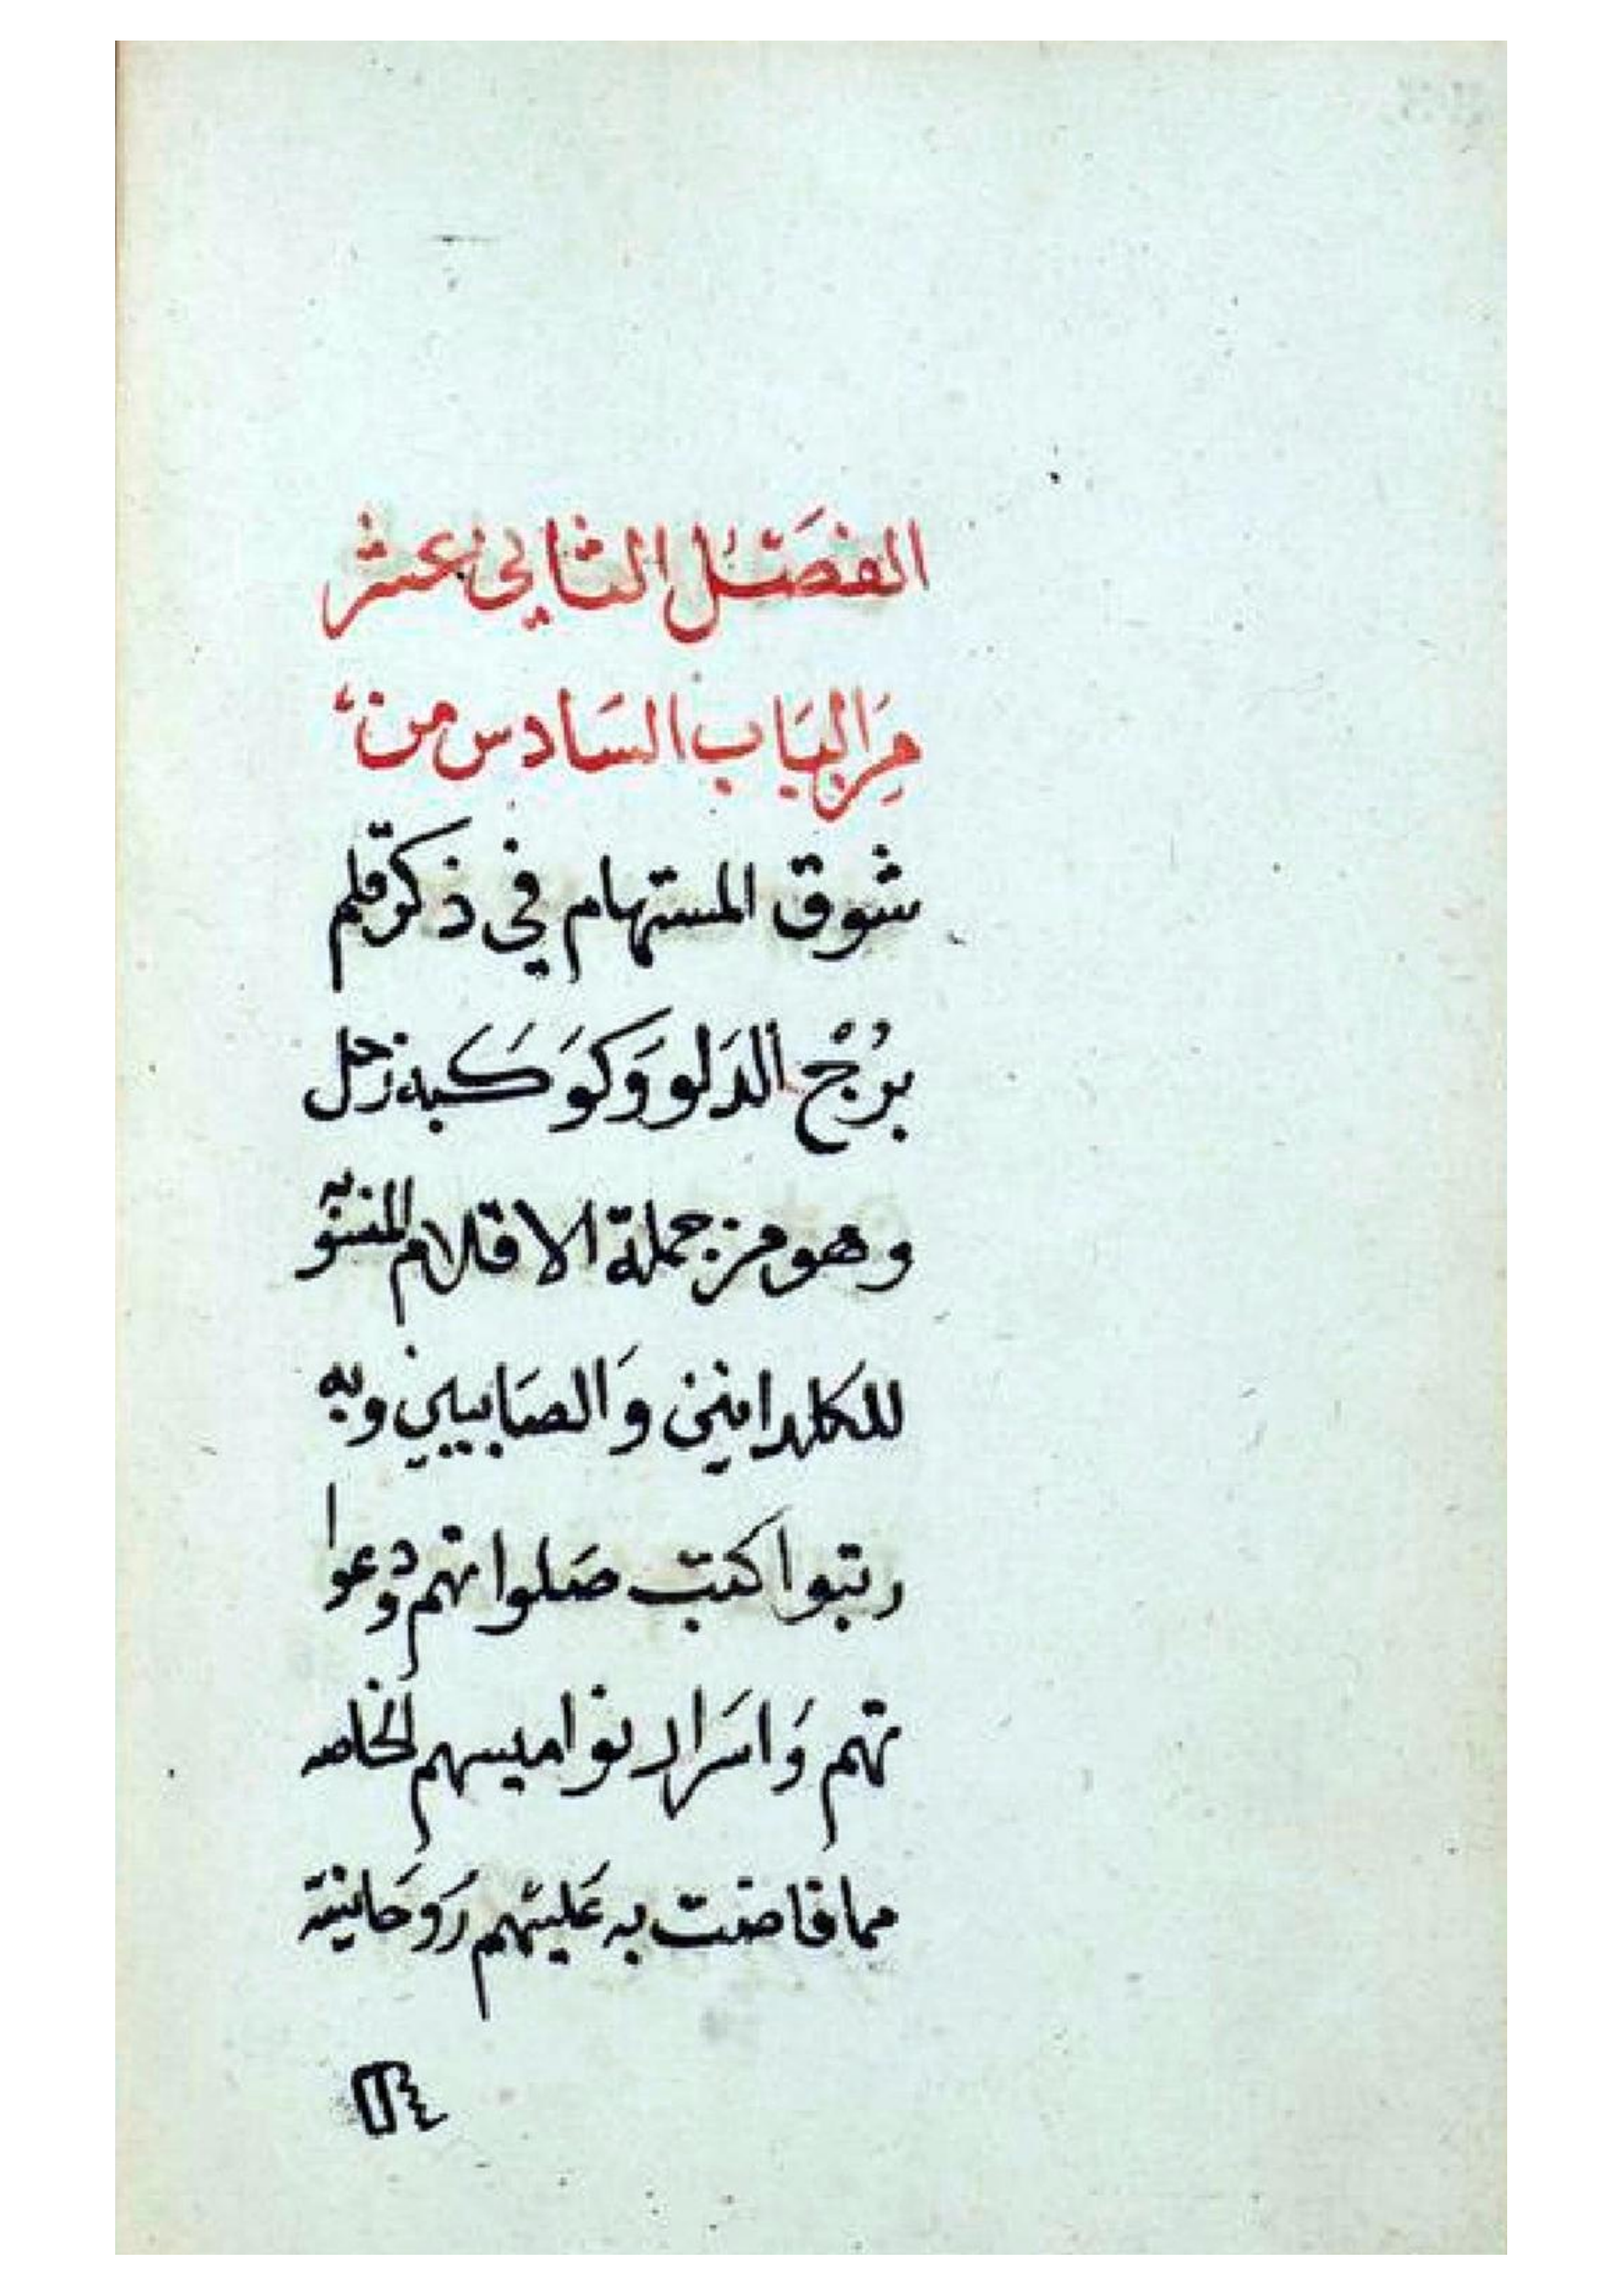 الفصَل الثاني عشر
مِنَ البَاب السَادس من
شوق المستهام في ذكر قلم
بُرْج الدَلو وَكوَكَبه زحل
وهو من جملة الاقلام المنسوبه
للكلدانين وَالصَابيين وبه
رتبوا كتب صَلواتهم ودعوا
تهم وَاسَرار نواميسهم الخاصه
مما فاضت به عَليهم رَوحَانية